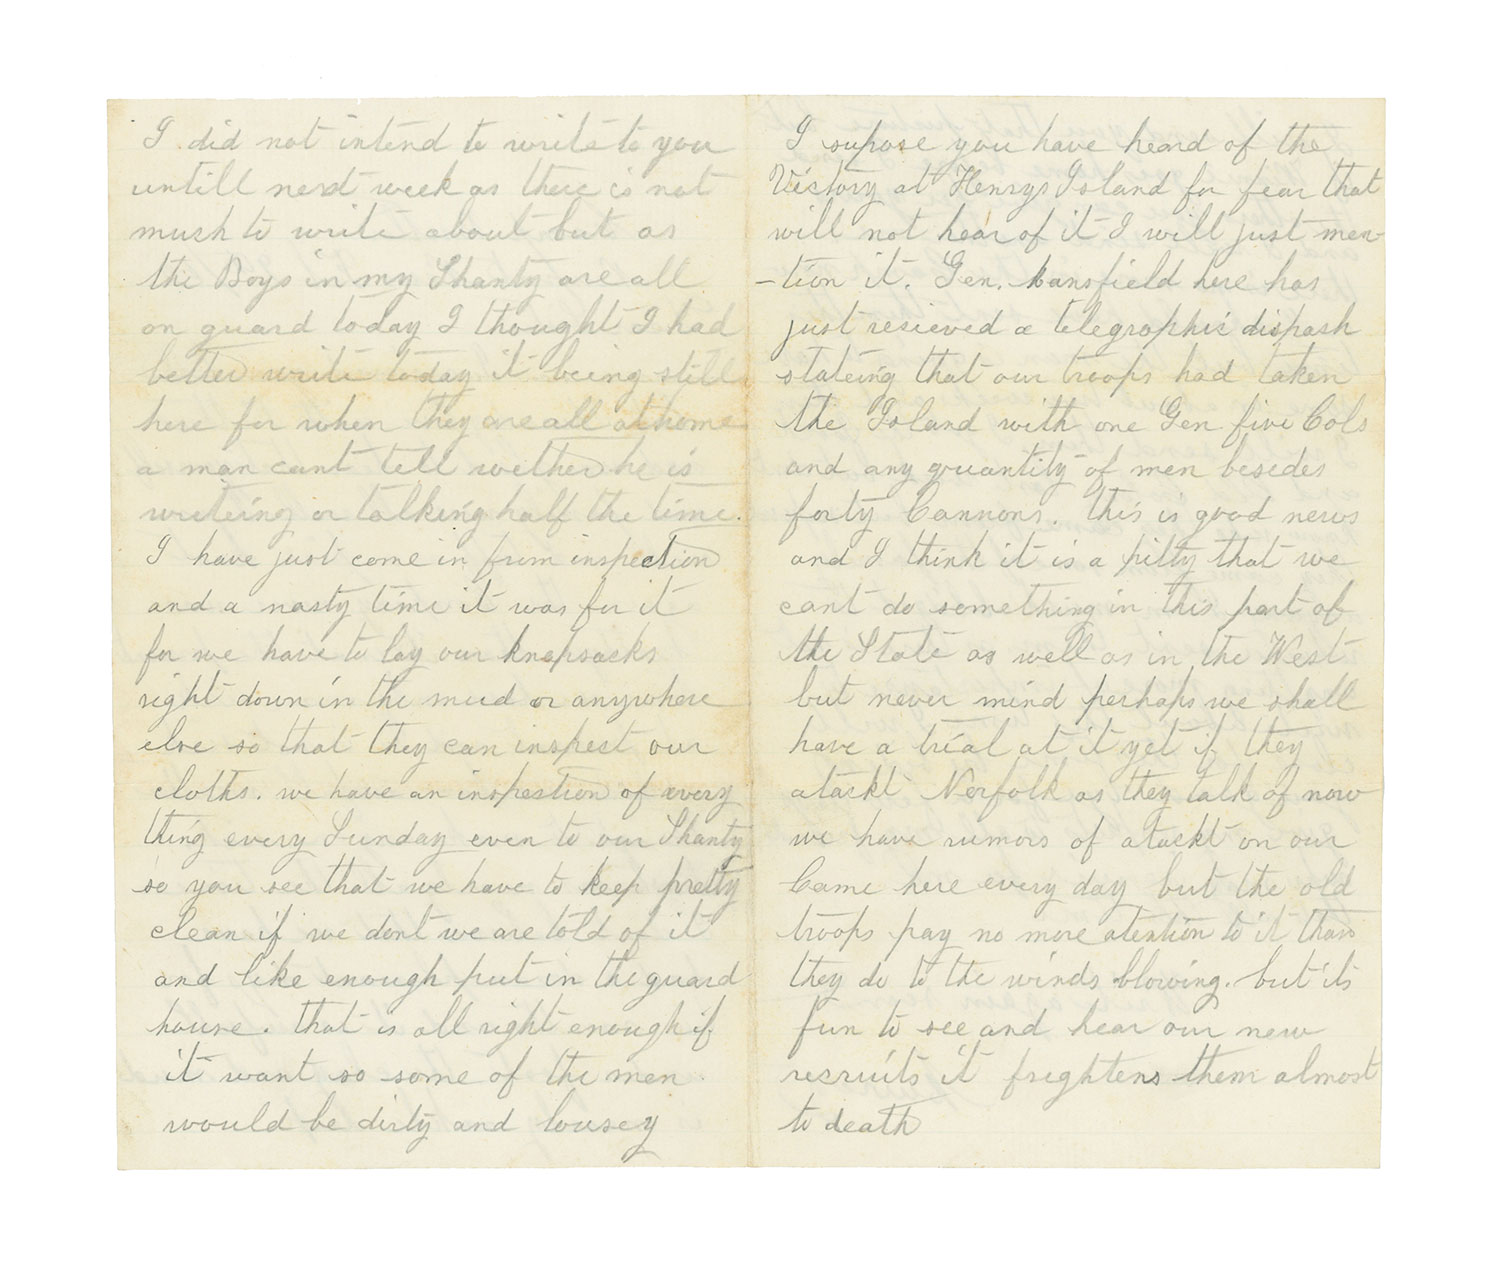 I did not intend to write to you
untill next week as there is not
mush to write about but as
the Boys in my Shanty are all
on guard today I thought I had
better write today it being still
here for when they are all at home
a man cant tell wether he is
writeing or talking half the time.
I have just come in from inspection
and a nasty time it was for it
for we have to lay our knepsacks
right down in the mud or anywhere
else so that they can inspect our
cloths. we have an inspection of every
thing every Sunday even to our Shanty
so you see that we have to keep pretty
clean if we dont we are told of it
and like enough put in the guard
house. that is all right enough if
it want so some of the men
would be dirty and lousey
I supose you have heard of the
Victory at Henrys Island for fear that
will not hear of it I will just men
-tion it. Gen. Mansfield here has
just resieved a telegraphic dispash
stateing that our troops had taken
the Island with one Gen five Cols
and any quantity of men besedes
forty Cannons. this is good news
and I think it is a pitty that we
cant do something in this part of
the State as well as in the West
but never mind perhaps we shall
have a trial at it yet if they
atackt Norfolk as they talk of now
we have rumors of atackt on our
Came here every day but the old
troops pay no more atention to it than
they do to the winds blowing. but its
fun to see and hear our new
recruits it frightens them almost
to death